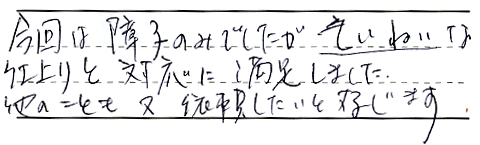 今回は障子のみでしたがていねいな
仕上りと対応に満足しました.
他のことも又依頼したいと存じます.